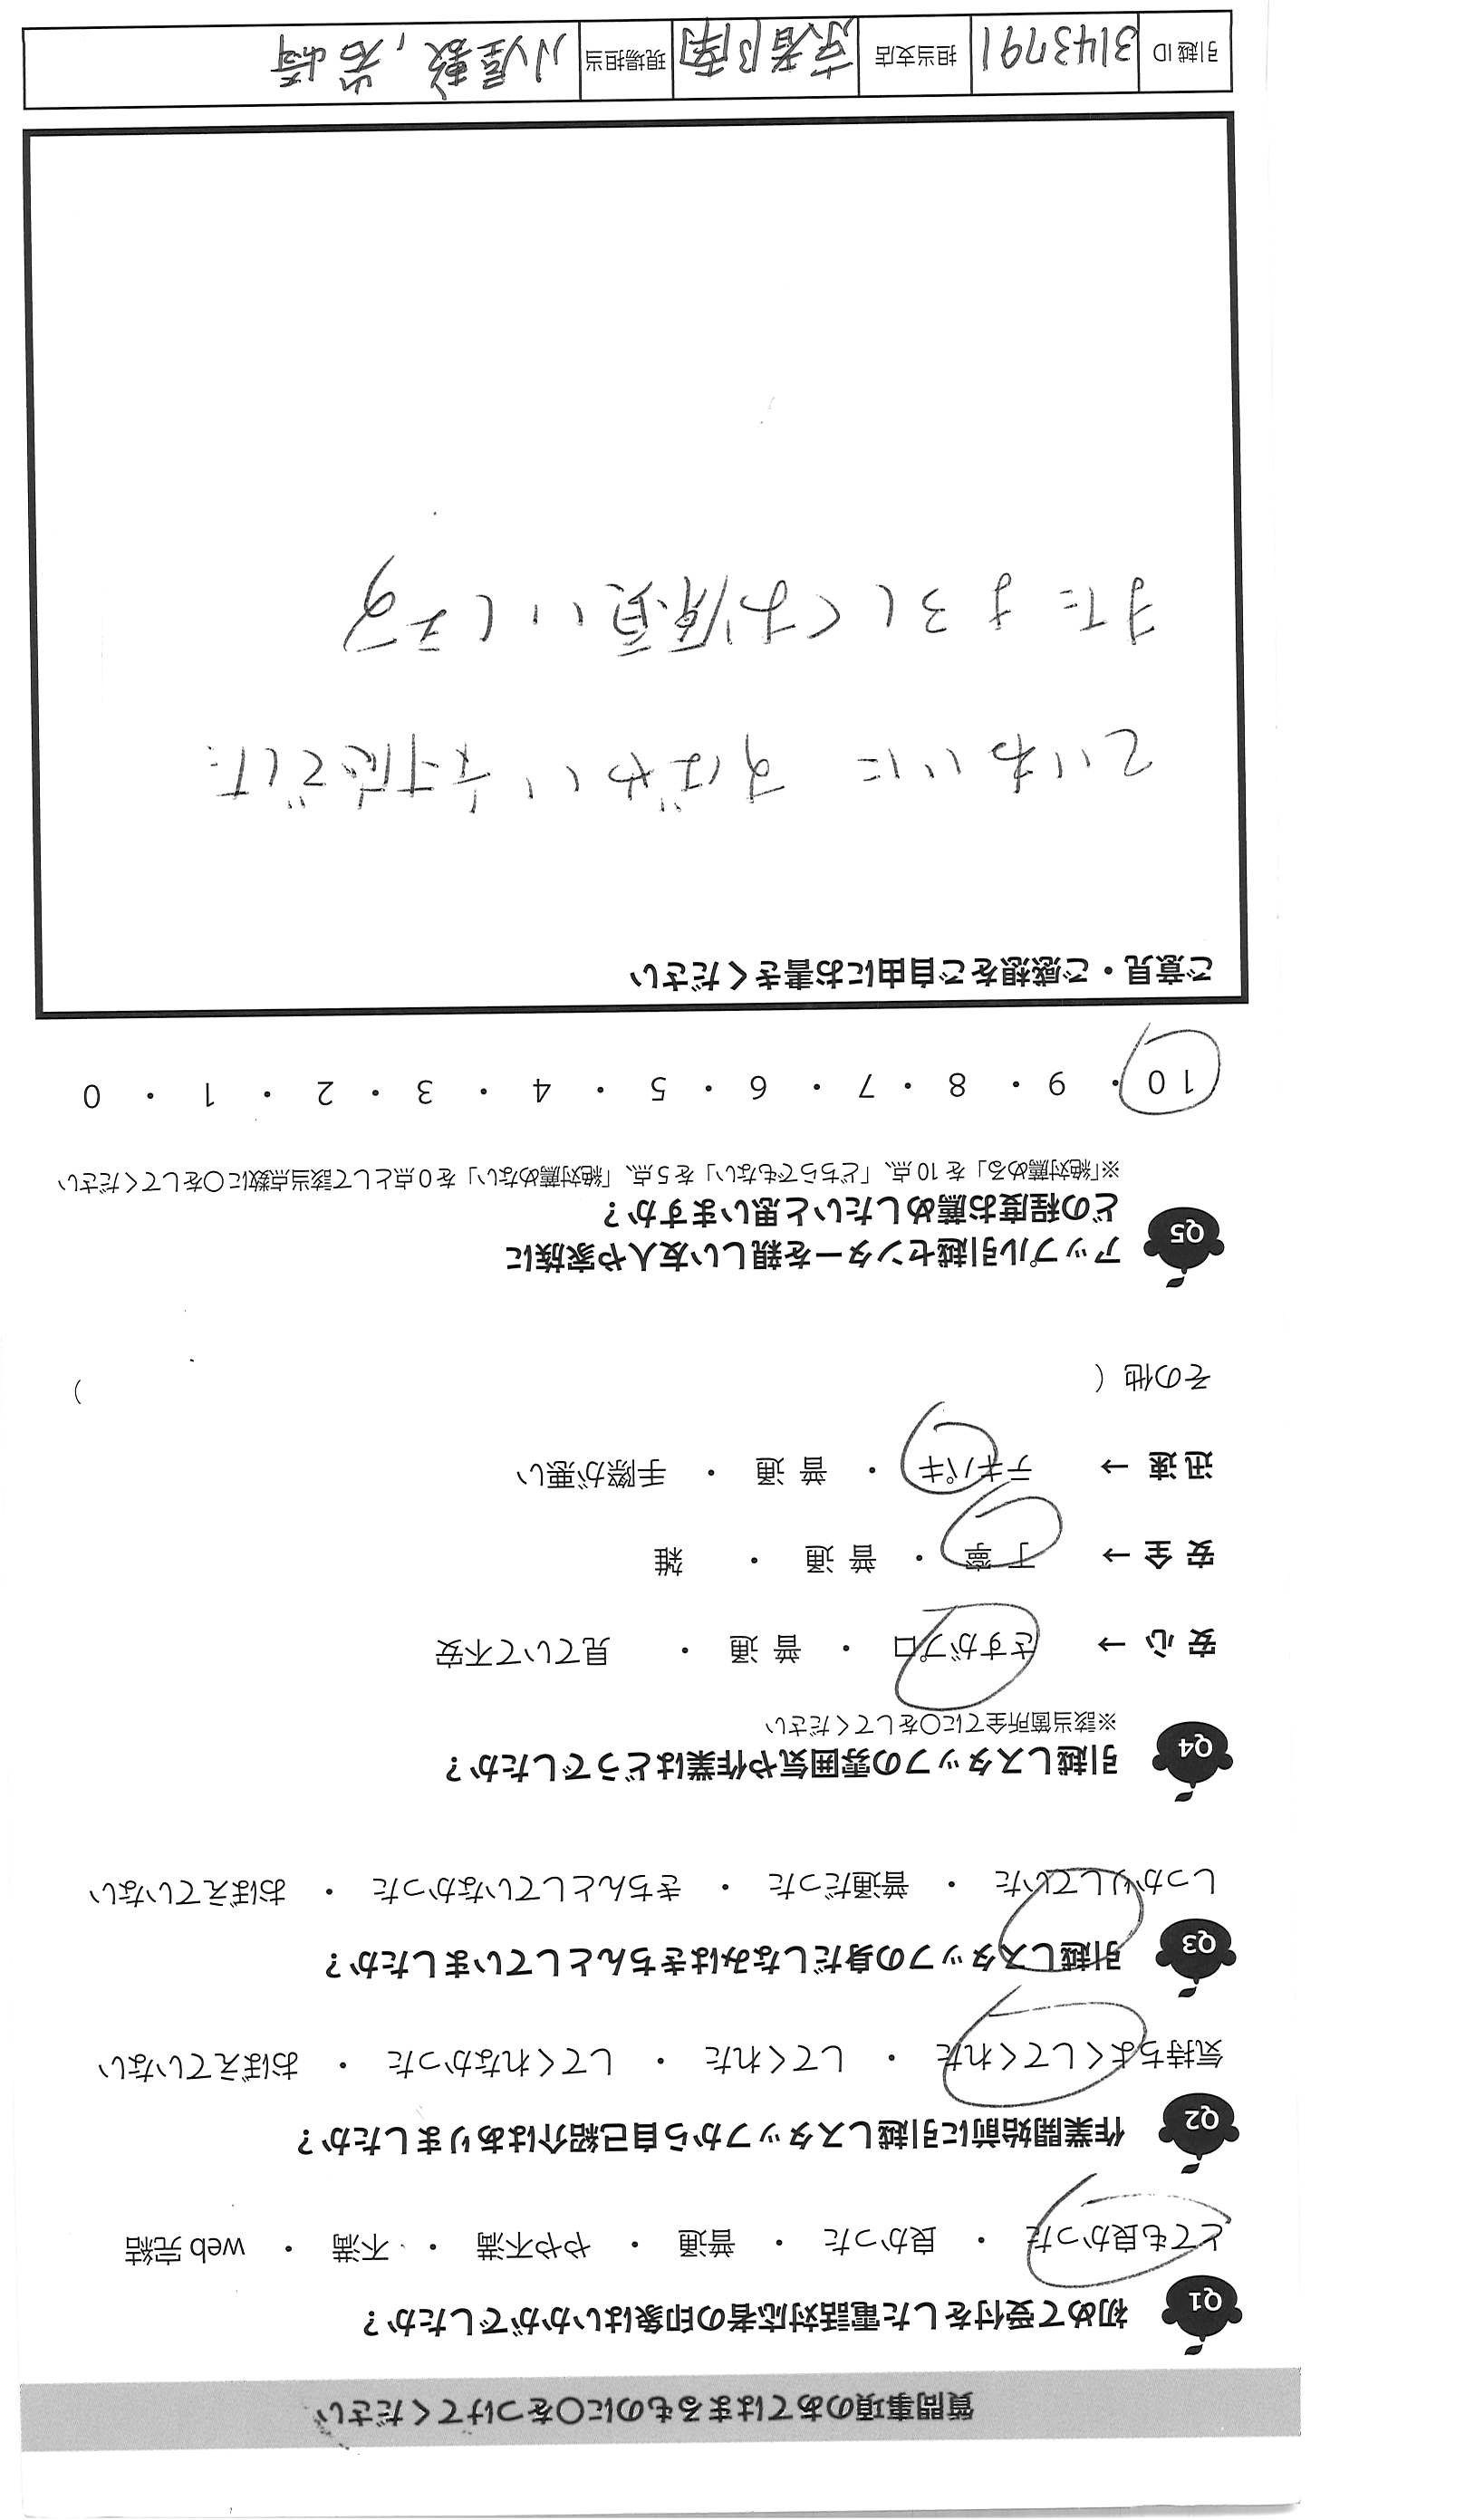 質問事項のあてはまるものに〇をつけてください
Q1 初めて受付をした電話対応者の印象はいかがでしたか？
とても良かった ・ 良かった ・ 普通 ・ やや不満 ・ 不満 ・ web 完結
Q2 作業開始前に引越しスタッフから自己紹介はありましたか？
気持ちよくしてくれた ・ してくれた ・ してくれなかった ・ おぼえていない
Q3 引越しスタッフの身だしなみはきちんとしていましたか？
しっかりしていた ・ 普通だった ・ きちんとしていなかった ・ おぼえていない
Q4 引越しスタッフの雰囲気や作業はどうでしたか？
※該当箇所全てに〇をしてください
安心 → さすがプロ ・ 普通 ・ 見ていて不安
安全 → 丁寧 ・ 普通 ・ 雑
迅速 → テキパキ ・ 普通 ・ 手際が悪い
その他（ ）
Q5 アップル引越センターを親しい友人や家族に
どの程度お薦めしたいと思いますか？
※「絶対薦める」を10点、「どちらでもない」を5点、「絶対薦めない」を0点として該当点数に〇をしてください
10 ・ 9 ・ 8 ・ 7 ・ 6 ・ 5 ・ 4 ・ 3 ・ 2 ・ 1 ・ 0
ご意見・ご感想をご自由にお書きください
ていねいに すばやい対応でした
またよろしくお願いします
引越ID 3143791 担当支店 京都南 現場担当 小屋敷, 岩崎